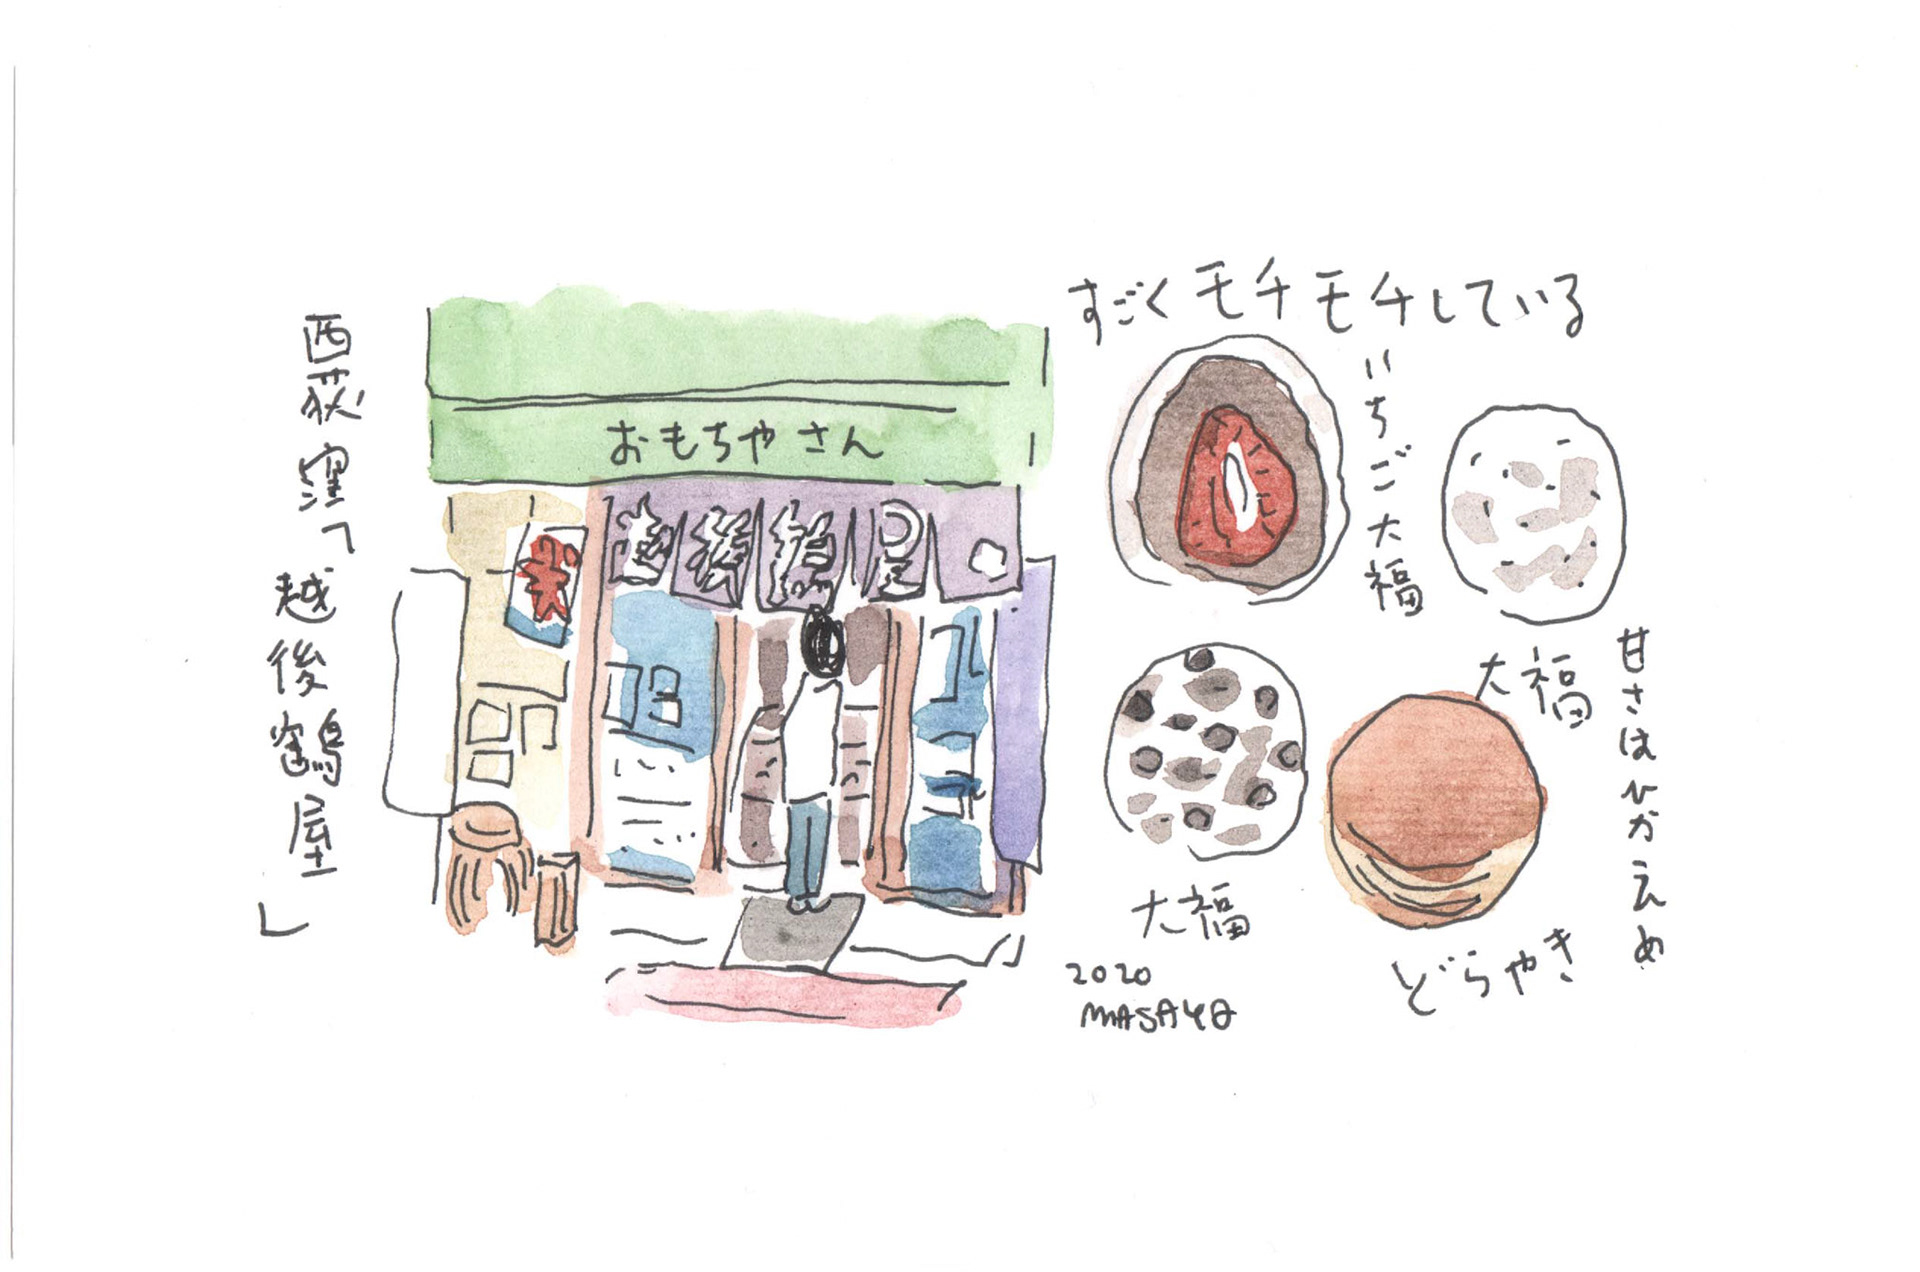 西荻窪「越後鶴屋」
おもちやさん
すごくモチモチしている
いちご大福
大福
甘さはひかえめ
大福
どらやき
2020
MASAYA